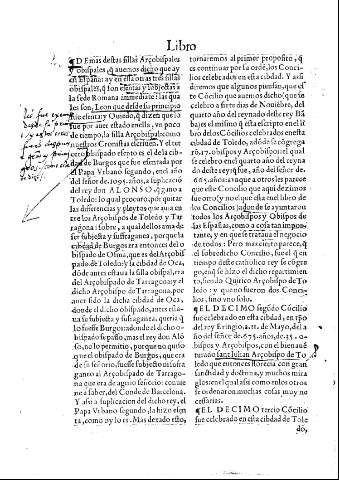 Libro
¶ DEmas destas sillas Arçobispales
y obispales, q̃ auemos dicho que ay
en España: ay en ella otras tres sillas
obispales, q̃ son esentas y subjectas a
la sede Romana immediate: las qua
les son, Leon que desde su principio
fue esenta y Ouiedo, q̃ dizen que lo
fue por auer estado en ella, vn poco
tiempo, la silla Arçobispal como
nuestros Cronistas escriuen. Y el ter
cero obispado esento es el dela cib
dad de Burgos que fue esentada por
el Papa Vrbano segundo, en el año
del señor de .1095. años, a suplicació
del rey don ALONSO, q̃ gano a
Toledo: lo qual procuro, por quitar
las differencias y pleytos que auia en
tre los Arçobispos de Toledo y Tar
ragona: sobre, a qual dellos auia de
ser subjecta y suffraganea, porque la
cibdad de Burgos era entonces del o
bispado de Osma, que es del Arçobis
pado de Toledo: y la cibdad de Oca,
dóde antes estaua la silla obispal, era
del Arçobispado de Tarragona y el
dicho Arçobispo de Tarragona, por
auer sido la dicha cibdad de Oca,
donde el dicho obispado, antes esta-
ua su subjecta y suffraganea, queria q̃
lo fuesse Burgos: adonde el dicho o-
bispado se passo, mas el rey don Aló
so, no lo permitio, porque no quiso
que el obispado de Burgos, que era
de su señorio, fuesse subjecto ni suffra
ganeo al Arçobispado de Tarrago-
na que era de ageno señorio: convie
ne a saber, del Conde de Barcelona.
Y assi a suplicacion del dicho rey, el
Papa Vrbano segundo, la hizo esen
ta, como oy lo es. Mas dexado esto,
tornaremos al primer proposito, q̃
es continuar por su ordé, los Concilios
celebrados en esta cibdad. Y assi
diremos que algunos piensan, que es
te Cócilio que auemos dicho, que se
celebro a siete dias de Nouiébre, del
quarto año del reynado deste rey Bá
ba, es el mismo q̃ esta escripto en el li
bro de los Cócilios celebrados en esta
cibdad de Toledo, adó de se cógrega
ró .17. obispos y Arçobispos: el qual
se celebro en el quarto año del reyna
do deste rey, q̃ fue, año del señor de
.675. años: aunque a otros les parece
que este Concilio que aqui dezimos
fue otro y no el que esta en el libro de
los Concilios: adonde se ayuntaron
todos los Arçobispos y Obispos de
las Españas, como a cosa tan impor
tante, y en que se trataua el negocio
de todos: Pero mas cierto parece, q̃
el sobredicho Concilio, fue el q̃ en
tiempo deste catholico rey se cógre
go, en q̃ se hizo el dicho repartimien
to, siendo Quirico Arçobispo de To
ledo: y que no fueron dos Conci-
lios, sino vno solo.
¶ EL DECIMO segúdo Cócilio
fue celebrado en esta cibdad, en tp̃o
del rey Eringio, a .11. de Mayo, del a
ño del señor de .675. años, de .35. o-
bispos y Arçobispos, con el bienaué
turado sant Iulian Arçobispo de To
ledo que entonces florecia con gran
sanctidad y doctrina, y muchos mira
glos en el qual assi como enlos otros
se ordenaron muchas cosas muy ne
cessarias.
¶ EL DECIMO tercio Cócilio
fue celebrado en esta cibdad de Tole
do,